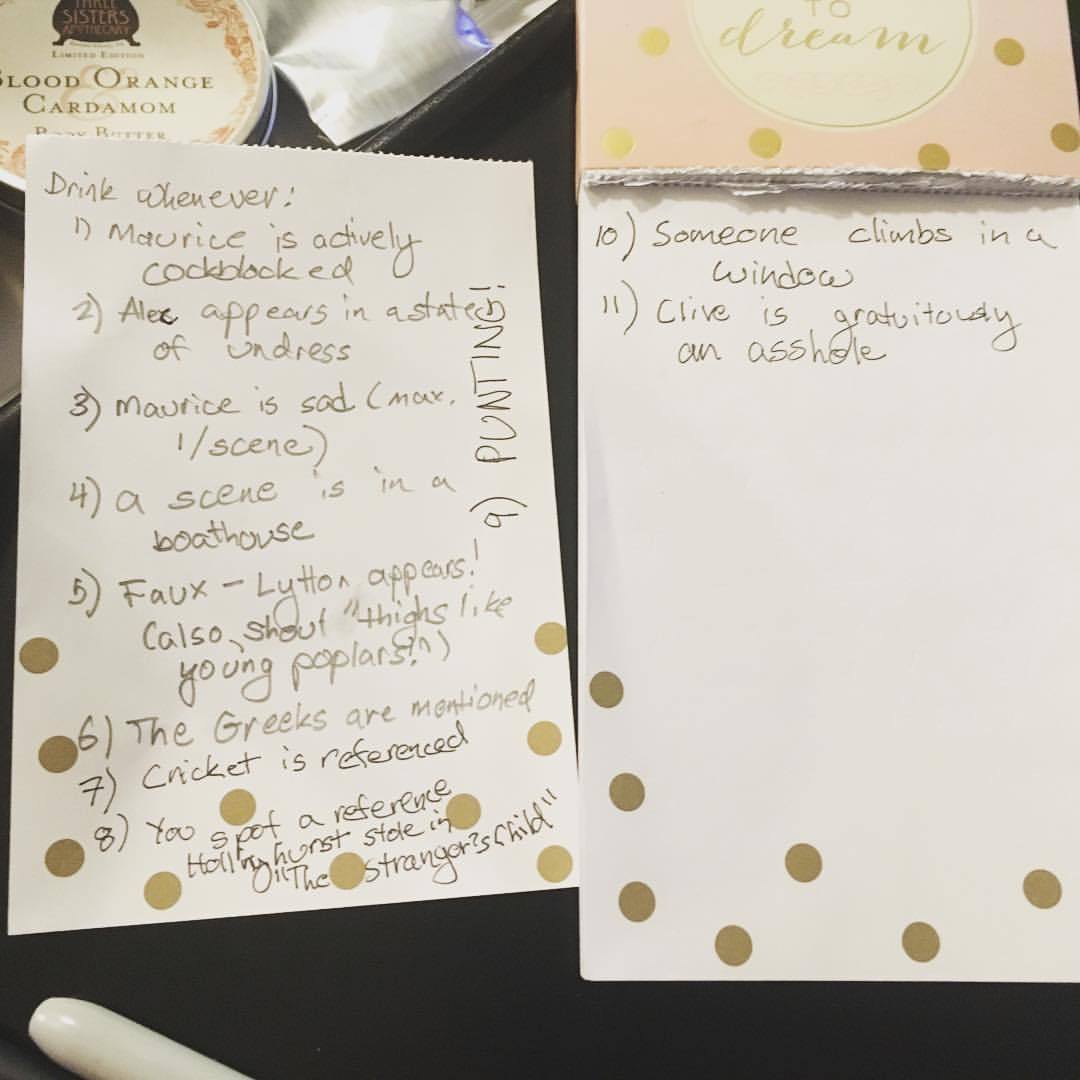 THREE
SISTERS
APOTHECARY
LIMITED EDITION
BLOOD ORANGE
&
CARDAMOM
BODY BUTTER
TO
dream
Drink whenever:
1) Maurice is actively
cockblocked
2) Alec appears in a state
of undress
3) Maurice is sad (max.
1/scene)
4) a scene is in a
boathouse
5) Faux-Lytton appears!
(also, shout "thighs like
young poplars!")
6) The Greeks are mentioned
7) Cricket is referenced
8) You spot a reference
Hollinghurst stole in
"The Stranger's Child"
9) PUNTING!
10) Someone climbs in a
window
11) Clive is gratuitously
an asshole